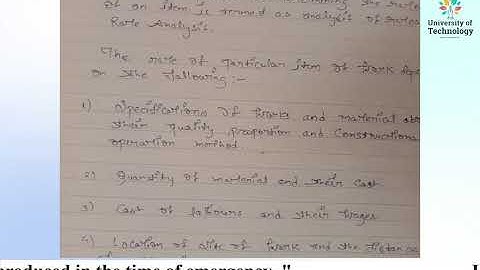 of an item is termed as analysis of rates
Rate Analysis.
The rate of particular item of work
on the following :-
1) Specifications of works and material
their quality, proportion and constructional
operation method.
2) Quantity of material and their cost
3) Cost of labours and their wages
4) Location of site of work and the
University of
Technology
produced in the time of emergency."